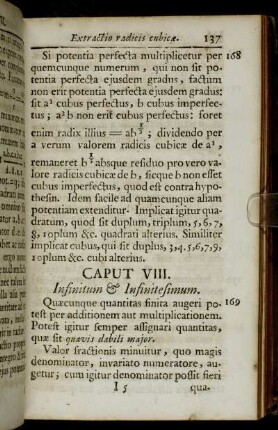 Extractio radicis cubicæ. 137
Si potentia perfecta multiplicetur per 168
quemcunque numerum, qui non sit po-
tentia perfecta ejusdem gradus, factum
non erit potentia perfecta ejusdem gradus:
sit a³ cubus perfectus, b cubus imperfec-
tus; a³b non erit cubus perfectus: foret
enim radix illius = ab^⅓; dividendo per
a verum valorem radicis cubicæ de a³,
remaneret b^⅓ absque residuo pro vero va-
lore radicis cubicæ de b, sicque b non esset
cubus imperfectus, quod est contra hypo-
thesin. Idem facile ad quamcunque aliam
potentiam extenditur. Implicat igitur qua-
dratum, quod sit duplum, triplum, 5, 6, 7,
8, 10plum &c. quadrati alterius. Similiter
implicat cubus, qui sit duplus, 3, 4, 5, 6, 7, 9,
10plum &c. cubi alterius.
CAPUT VIII.
Infinitum & Infinitesimum.
Quæcunque quantitas finita augeri po- 169
test per additionem aut multiplicationem.
Potest igitur semper assignari quantitas,
quæ sit quavis dabili major.
Valor fractionis minuitur, quo magis
denominator, invariato numeratore, au-
getur; cum igitur denominator possit fieri
I 5 qua-